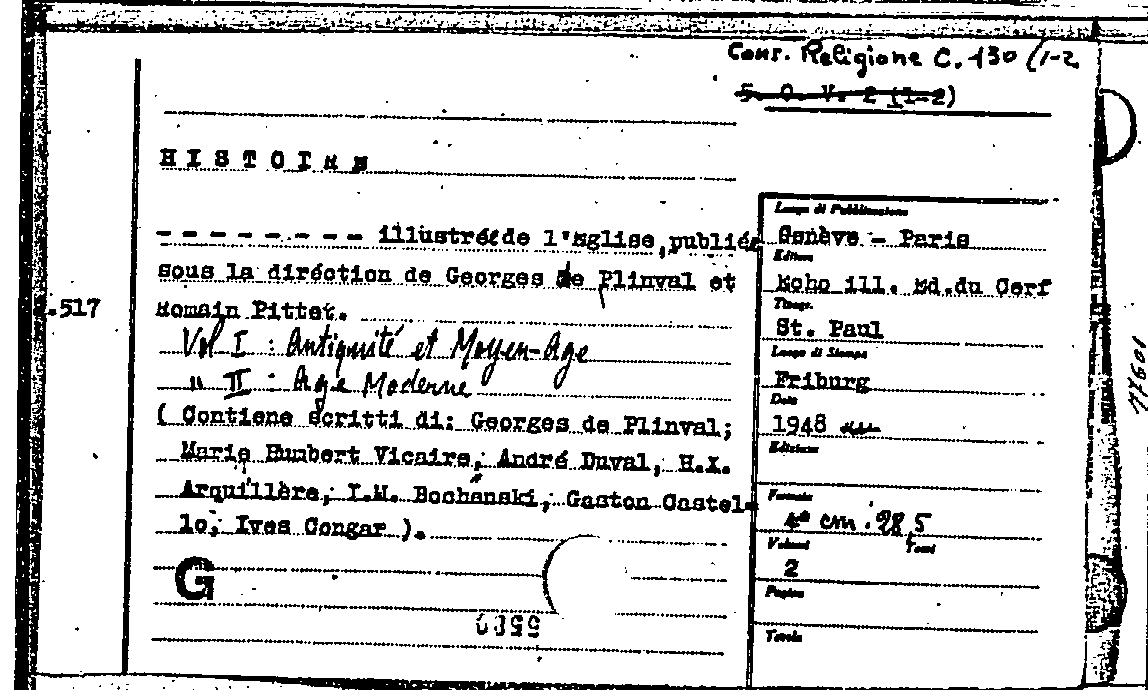 Cons. Religione C. 130 (1-2
S. O. V. 2 (I-2)
HISTOIRE
- - - - - - - - illustrée de l'Eglise, publiée
sous la diréction de Georges de Plinval et
.517
Romain Pittet.
Vol I : Antiquité et Moyen-Age
" II : Age Moderne
( Contiene scritti di: Georges de Plinval;
Marie Humbert Vicaire; André Duval, H.X.
Arquillère, I.M. Bochenski, Gaston Castel-
lo, Ives Congar ).
G
Luogo di Pubblicazione
Genève - Paris
Editore
Echo ill. Ed.du Cerf
Tipogr.
St. Paul
Luogo di Stampa
Friburg
Data
1948
Edizione
Formato
4° cm. 28,5
Volumi Tomi
2
Pagine
Tavole